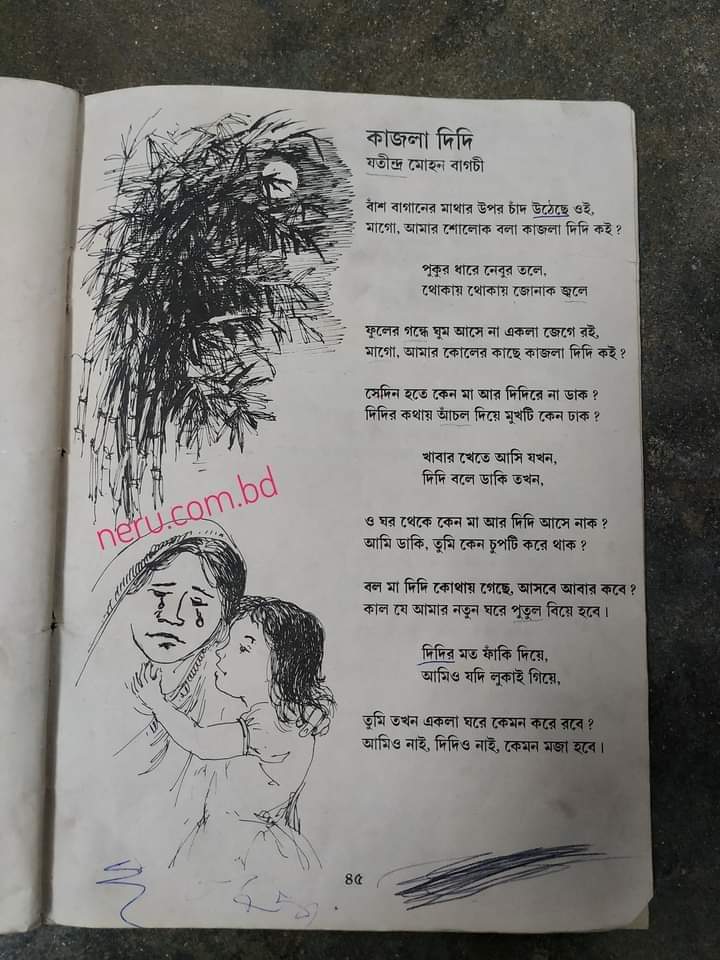 কাজলা দিদি
যতীন্দ্র মোহন বাগচী
বাঁশ বাগানের মাথার উপর চাঁদ উঠেছে ওই,
মাগো, আমার শোলোক বলা কাজলা দিদি কই ?
পুকুর ধারে নেবুর তলে,
থোকায় থোকায় জোনাক জ্বলে
ফুলের গন্ধে ঘুম আসে না একলা জেগে রই,
মাগো, আমার কোলের কাছে কাজলা দিদি কই ?
সেদিন হতে কেন মা আর দিদিরে না ডাক ?
দিদির কথায় আঁচল দিয়ে মুখটি কেন ঢাক ?
খাবার খেতে আসি যখন,
দিদি বলে ডাকি তখন,
ও ঘর থেকে কেন মা আর দিদি আসে নাক ?
আমি ডাকি, তুমি কেন চুপটি করে থাক ?
বল মা দিদি কোথায় গেছে, আসবে আবার কবে ?
কাল যে আমার নতুন ঘরে পুতুল বিয়ে হবে ।
দিদির মত ফাঁকি দিয়ে,
আমিও যদি লুকাই গিয়ে,
তুমি তখন একলা ঘরে কেমন করে রবে ?
আমিও নাই, দিদিও নাই, কেমন মজা হবে ।
neru.com.bd
৪৫